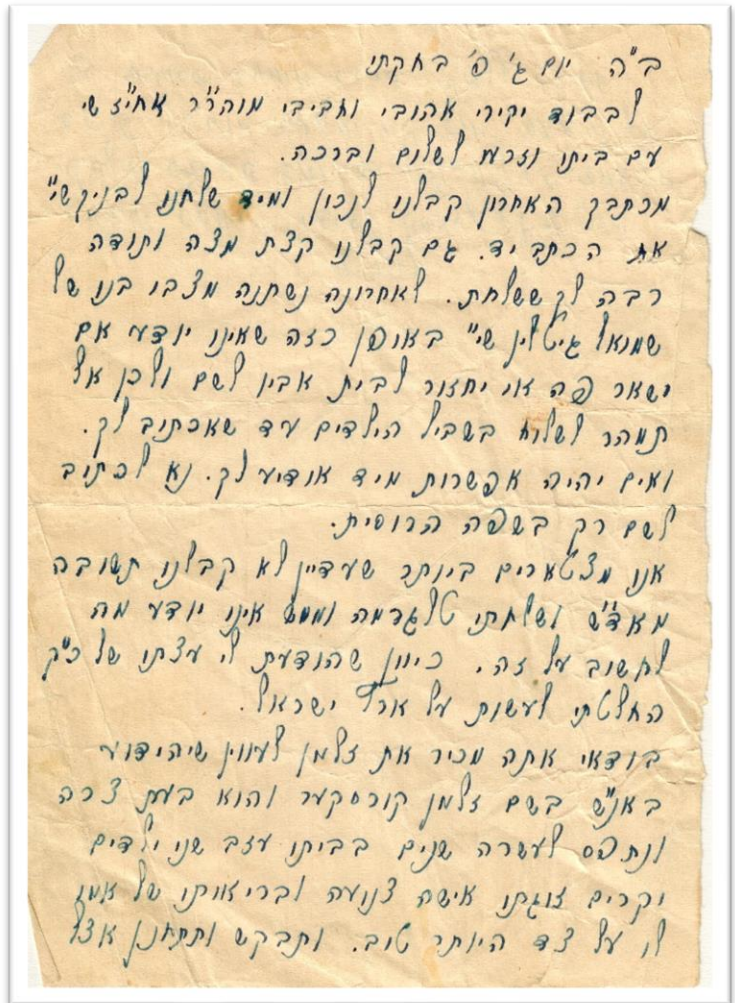 ב"ה יום ג' פ' בחקתי
לכבוד יקירי אהובי וחביבי מוהר"ר אחי"ז שי
עם ביתו וזרעו לשלום וברכה.
מכתבך האחרון קבלנו לנכון ומיד שלחנו לבניק שי"
את הכתב יד. גם קבלנו קצת מצה ותודה
רבה לך ששלחת. לאחרונה נשתנה מצבו בנו של
שמואל גיטלין שי" באופן כזה שאינו יודע אם
ישאר פה או יחזור לבית אביו לשם ולכן אל
תמהר לשלוח בשביל הילדים עד שאכתוב לך.
ואים יהיה אפשרות מיד אודיע לך. נא לכתוב
לשם רק בשפה הרוסית.
אנו מצטארים ביותר שעדיין לא קבלנו תשובה
מאד"ש ושלחתי טלגרמה וממש אינו יודע מה
לחשוב על זה. כיוון שהודעת לי עצתו של כ"ק
החלטתי לעשות על ארץ ישראל.
בודאי אתה מכיר את זלמן לעווין שיהידוע
באנ"ש בשם זלמן קורסקער והוא בעת צרה
ונתפס לעשרה שנים בביתו עזב שני ילדים
יקרים זוגתו אישה צנועה ובריאותו של אמו
לו על צד היותר טוב. ותבקש ותתחנן אצל